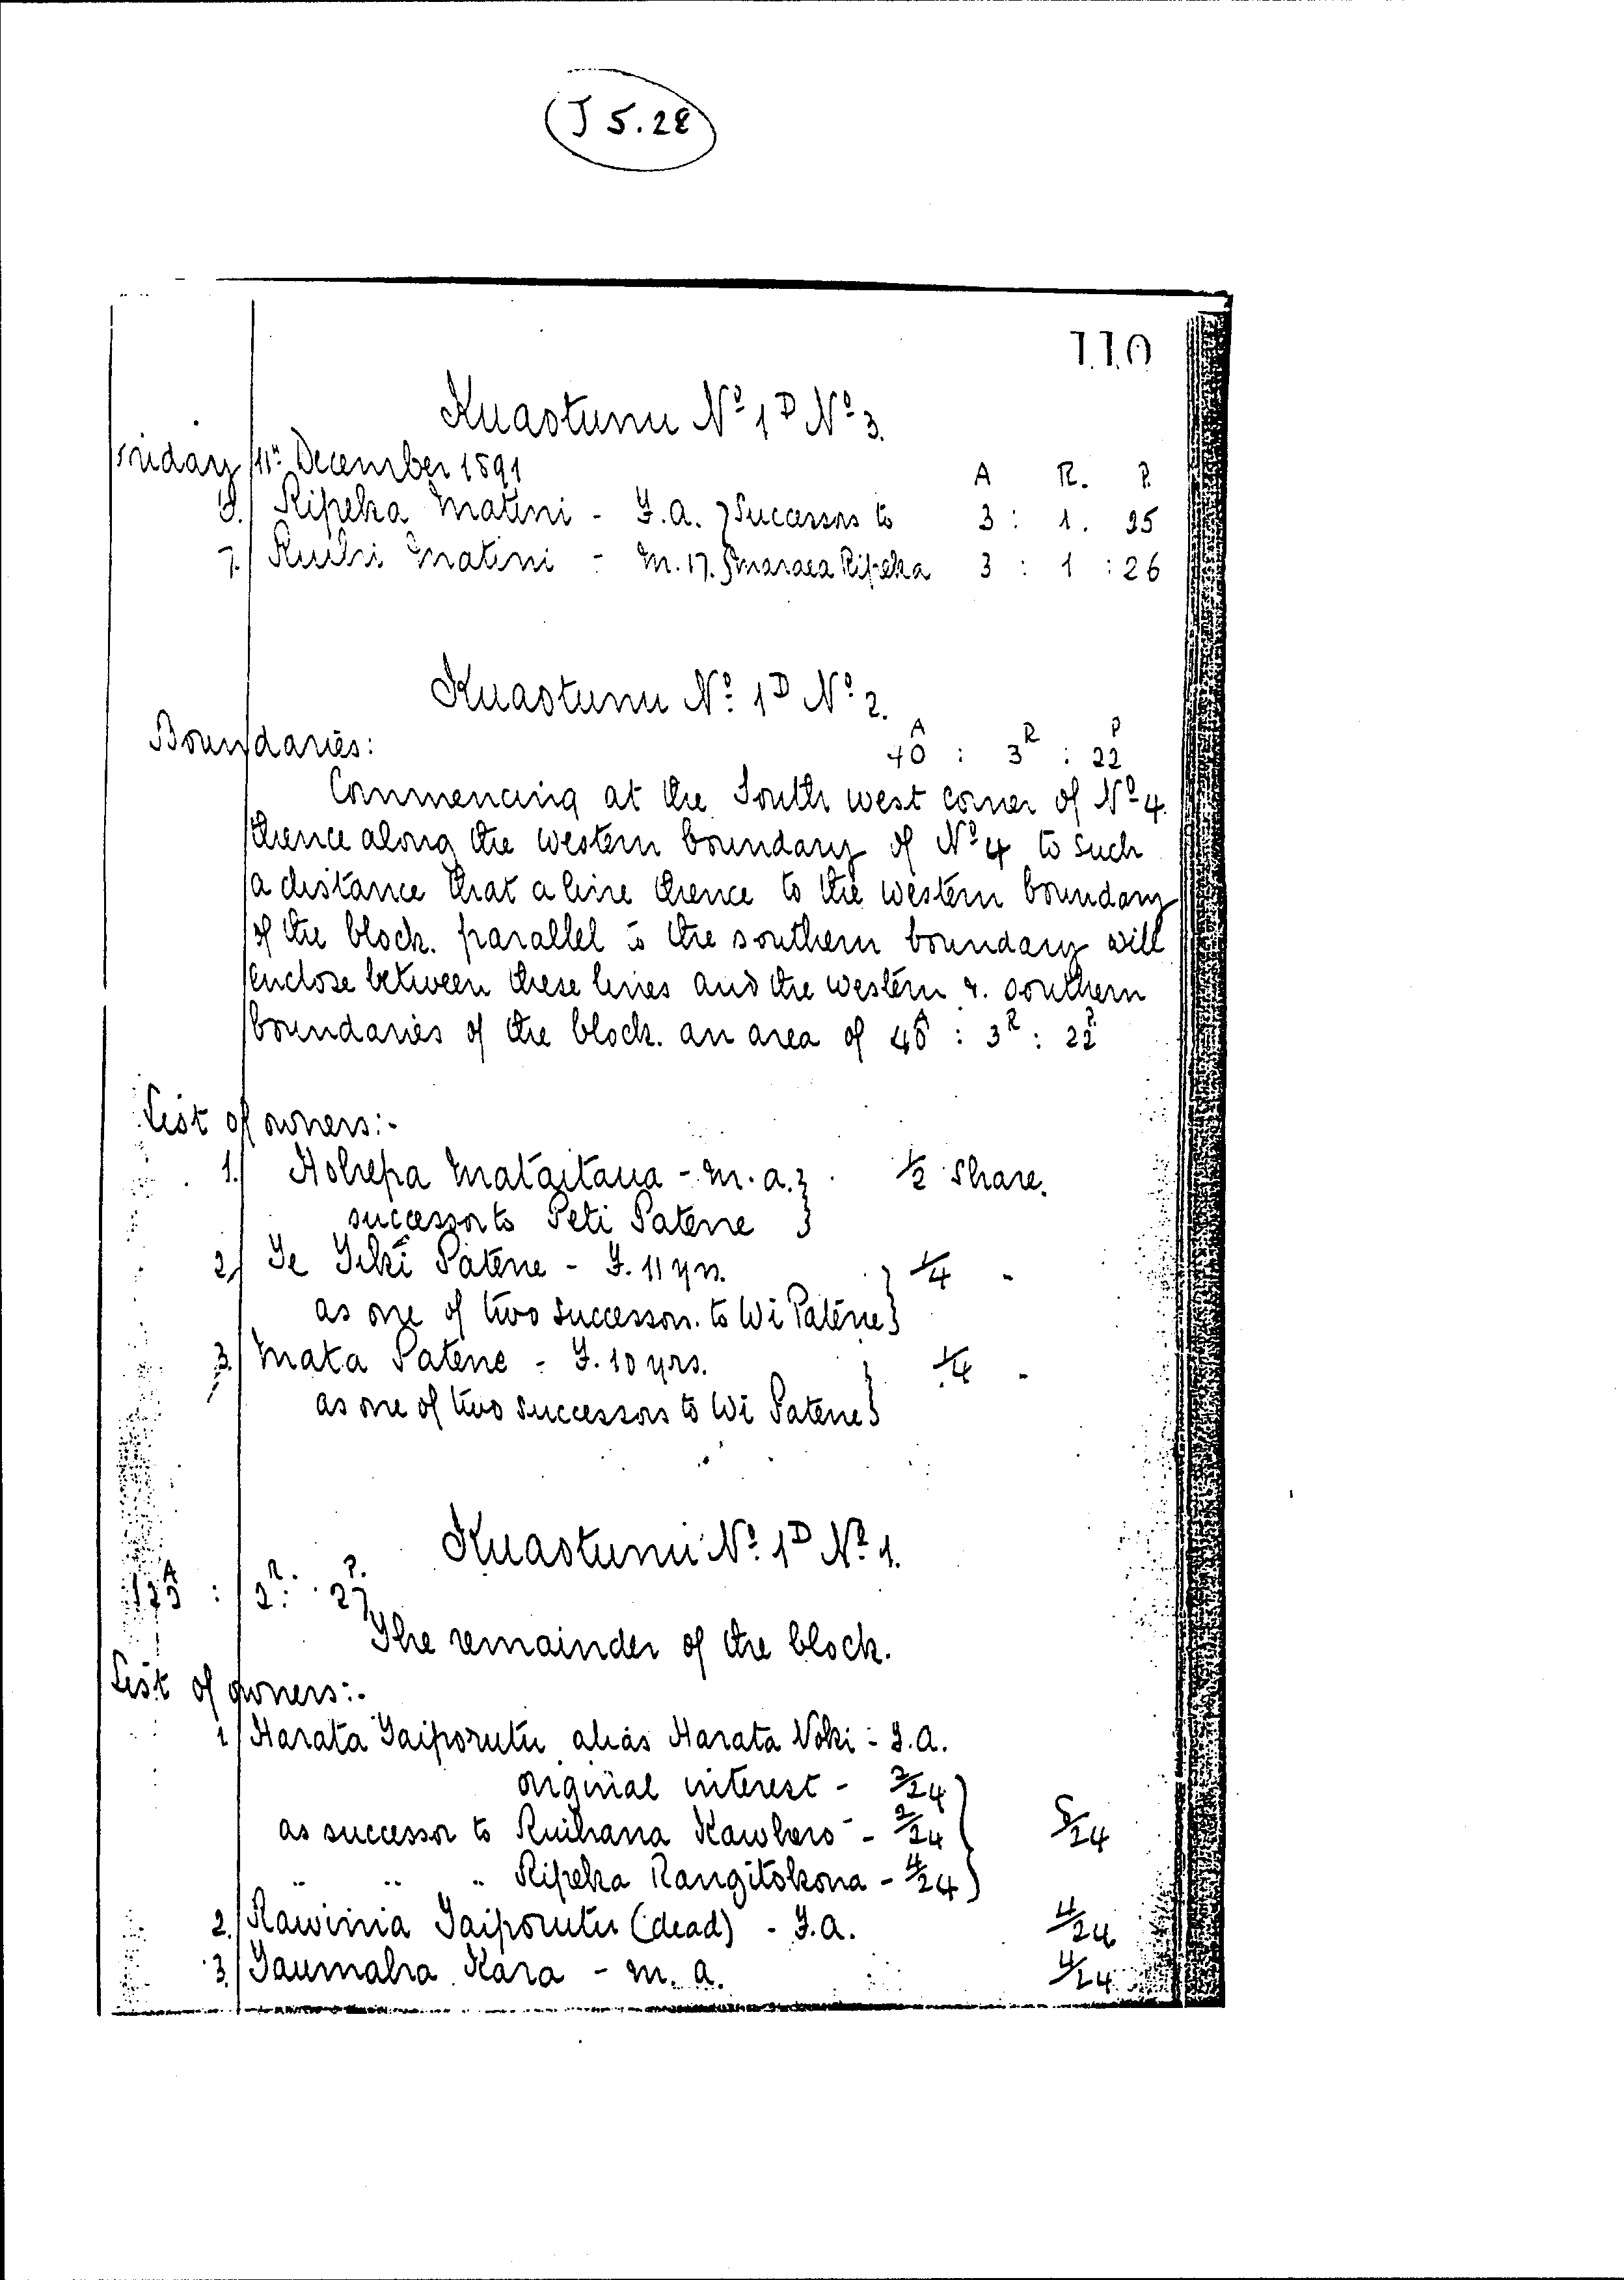 J 5.28
110
Kuaotunu No 1D No 3.
Friday 11th December 1891
A R. P.
6. Ripeka Matini - F.A. } Successors to 3 : 1 . 25
7. Ruihi Matini - M.17. } Maraea Ripeka 3 : 1 : 26
Kuaotunu No 1D No 2.
Boundaries: 40A : 3R : 22P
Commencing at the South west corner of No 4.
thence along the western boundary of No 4 to such
a distance that a line thence to the western boundary
of the block. parallel to the southern boundary will
enclose between these lines and the western & southern
boundaries of the block. an area of 40A : 3R : 22P
List of owners:-
1. Hohepa Mataitaua - M.A. } 1/2 Share.
successor to Peti Patene }
2. Te Tiki Patene - F. 11 yrs. } 1/4 "
as one of two successors. to Wi Patene }
3. Mata Patene - F. 10 yrs. } 1/4 "
as one of two successors to Wi Patene }
Kuaotunu No 1D No 1.
A R. P.
2 : 27
The remainder of the block.
List of owners:-
1. Harata Taiporutu alias Harata Noki - F.A.
original interest - 2/24 }
as successor to Ruihana Kawhero - 2/24 } 8/24
" " " Ripeka Rangitokona - 4/24 }
2. Rawinia Taiporutu (dead) - F.A. 4/24
3. Taumaha Kara - M.A. 4/24